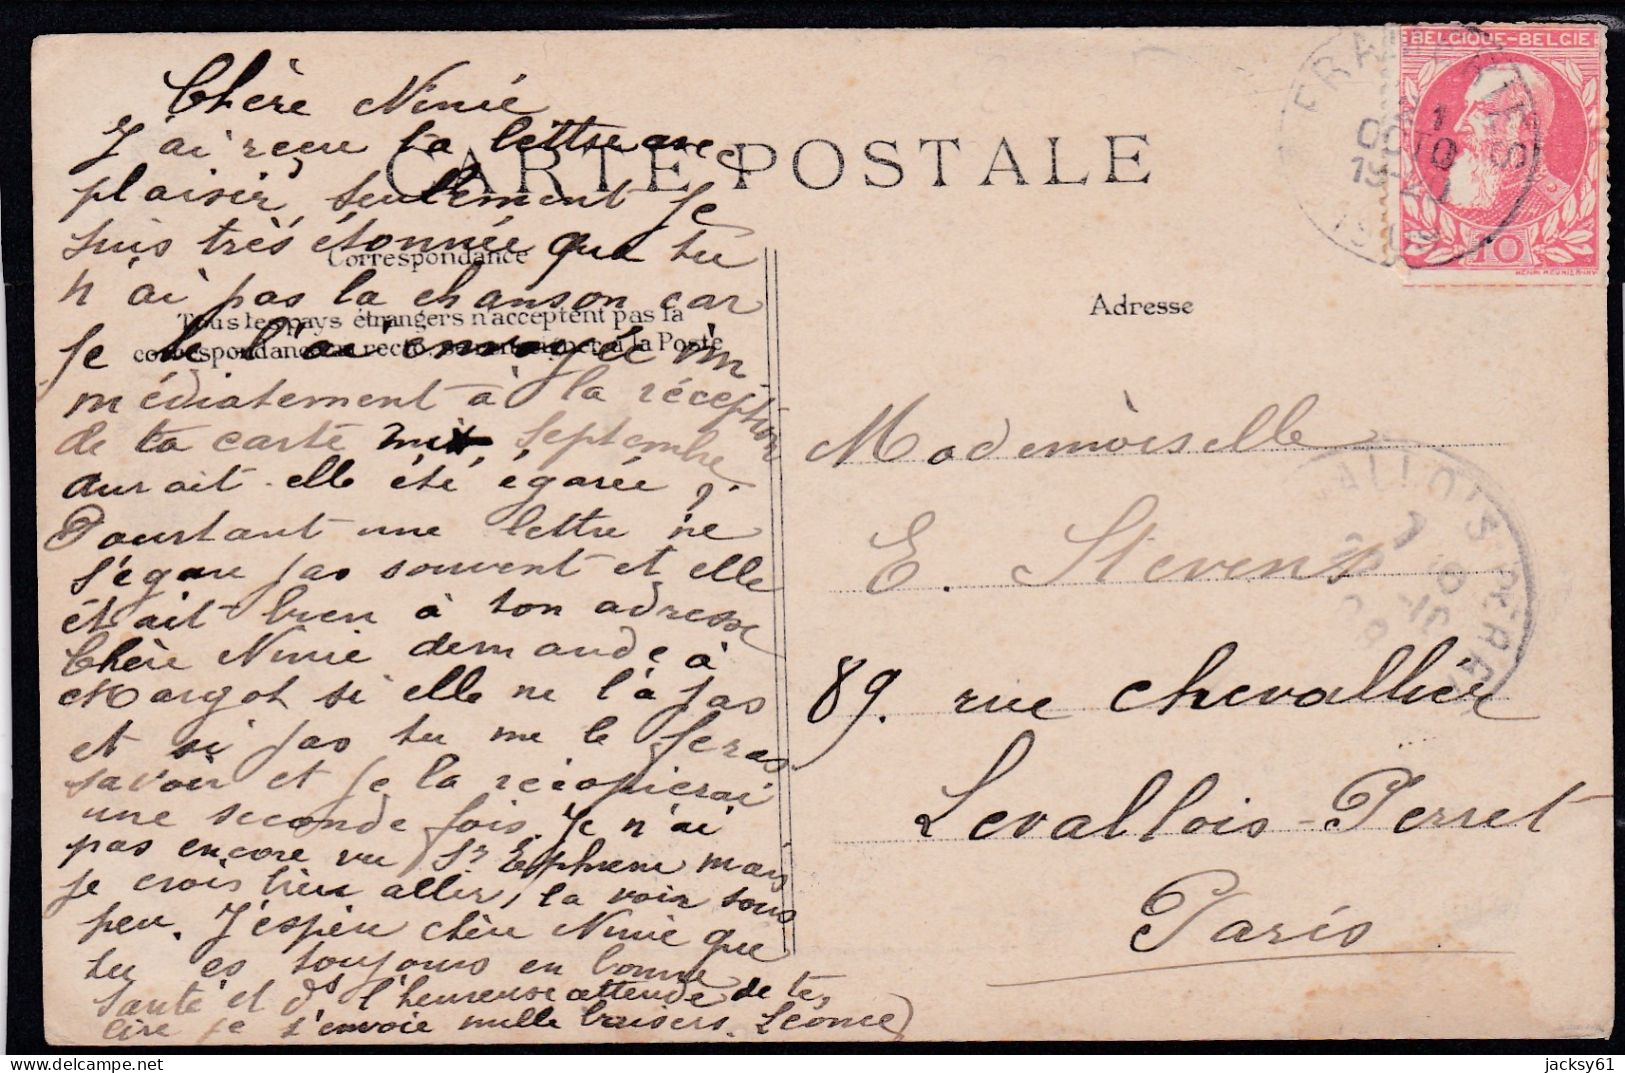 CARTE POSTALE
Correspondance
Tous les pays étrangers n'acceptent pas la
correspondance au recto, se renseigner à la Poste
Adresse
Chère Ninie
J'ai reçu ta lettre avec
plaisir, seulement je
suis très étonnée que tu
n'ai pas la chanson car
je te l'ai envoyée im-
médiatement à la réception
de ta carte mit, septembre
aurait-elle été égarée ?
Pourtant une lettre ne
s'égare pas souvent et elle
était bien à ton adresse
Chère Ninie demande à
Margot si elle ne l'a pas
et si pas tu me le feras
savoir et je la recopierai
une seconde fois. Je n'ai
pas encore vu St Ephrem mais
je crois bien aller, la voir sous
peu. J'espère chère Ninie que
tu es toujours en bonne
santé et ds l'heureuse attende de te,
lire je t'envoie mille baisers. Léonce
Mademoiselle
E. Stevens
89. rue chevallier
Levallois-Perret
Paris
BELGIQUE-BELGIE
10
1
OCT
10
1909
LEVALLOIS-PERRET
jacksy61